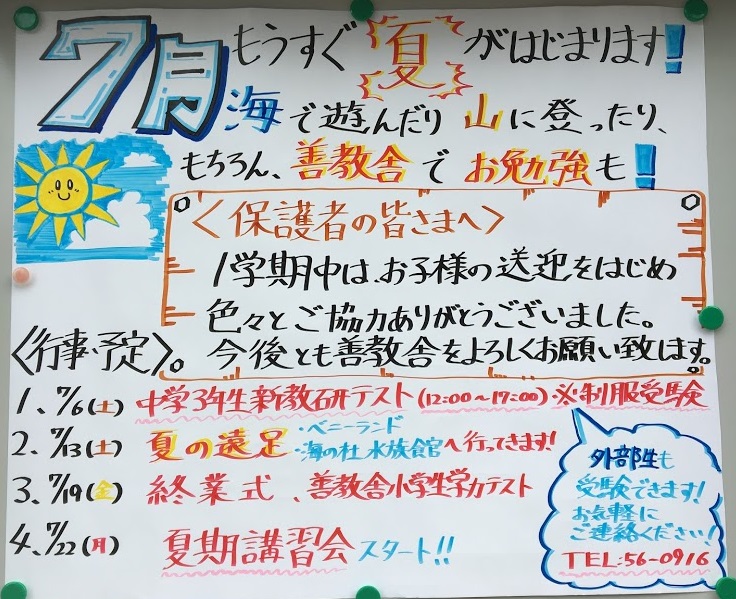 7月 もうすぐ夏がはじまります!
海で遊んだり山に登ったり、
もちろん、善教舎でお勉強も!
〈保護者の皆さまへ〉
1学期中は、お子様の送迎をはじめ
色々とご協力ありがとうございました。
今後とも善教舎をよろしくお願い致します。
〈行事予定〉。
1、7/6(土) 中学3年生新教研テスト(12:00~17:00)※制服受験
2、7/13(土) 夏の遠足 ・ベニーランド
・海の杜水族館へ行ってきます!
3、7/19(金) 終業式、善教舎小学生学力テスト
4、7/22(月) 夏期講習会スタート!!
外部生も
受験できます!
お気軽に
ご連絡ください!
TEL:56-0916